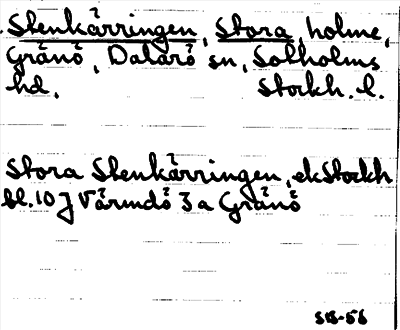 Stenkärringen, Stora, holme,
Gränö, Dalarö sn, Sotholms
hd. Stockh. l.
Stora Stenkärringen, ekStockh
bl. 10 J Värmdö 3 a Gränö
SIB-56